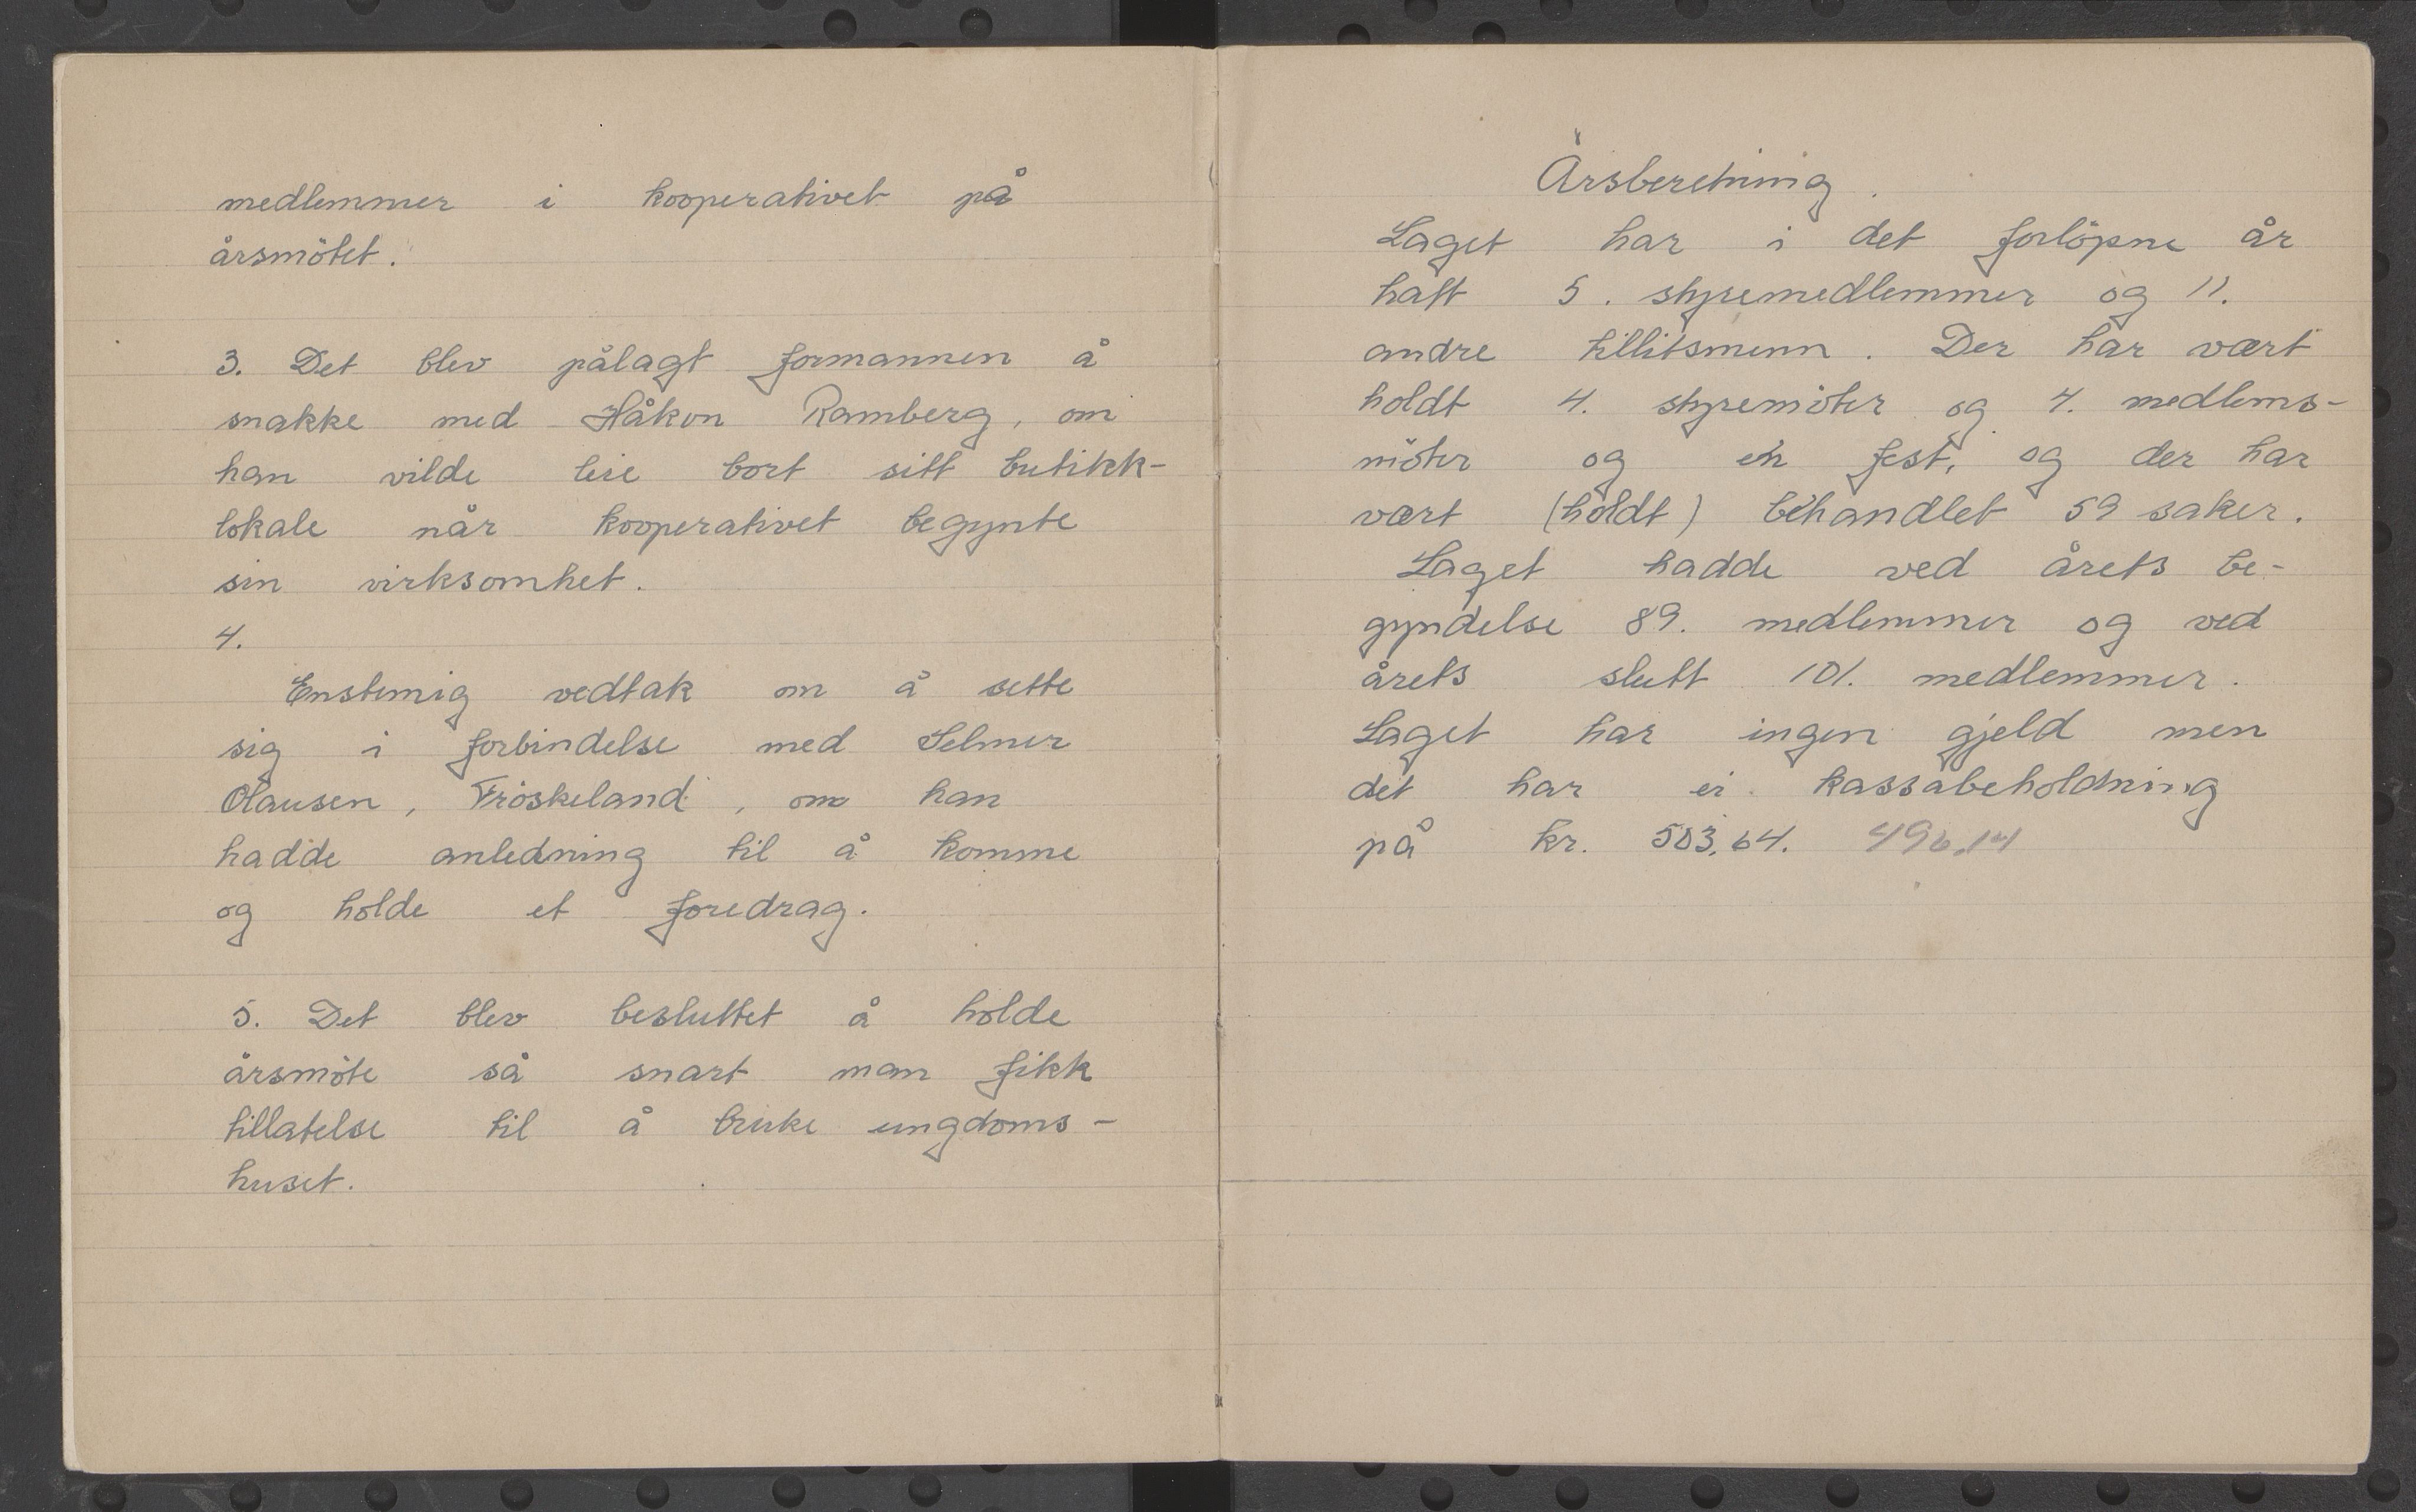 medlemmer i kooperativet på
årsmötet.
3. Det blev pålagt formannen å
snakke med Håkon Ramberg, om
han vilde leie bort sitt butikk-
lokale når kooperativet begynte
sin virksomhet.
4.
Enstemig vedtak om å sette
sig i forbindelse med Selmer
Olausen, Fröskeland, om han
hadde anledning til å komme
og holde et foredrag.
5. Det blev besluttet å holde
årsmöte så snart man fikk
tillatelse til å bruke ungdoms-
huset.
Årsberetning.
Laget har i det forlöpne år
hatt 5. styremedlemmer og 11.
andre tillitsmenn. Der har vært
holdt 4. styremöter og 4. medlems-
möter og en fest, og der har
vært (holdt) behandlet 59 saker.
Laget hadde ved årets be-
gyndelse 89. medlemmer og ved
årets slutt 101. medlemmer.
Laget har ingen gjeld men
det har ei kassabeholdning
på kr. 503,64. 496,14